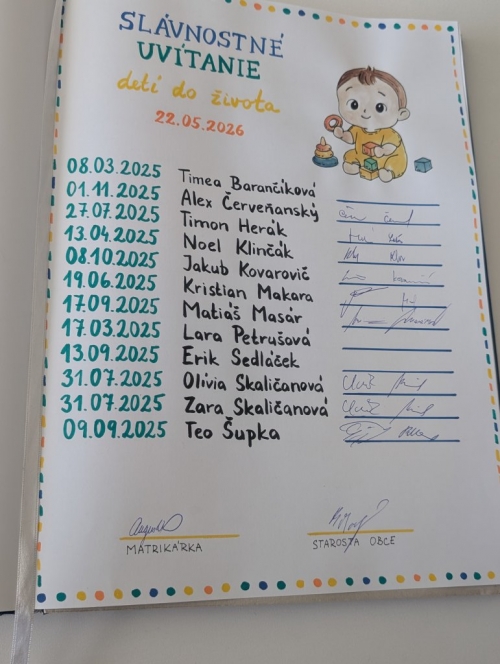 SLÁVNOSTNÉ
UVÍTANIE
detí do života
22.05.2026
08.03.2025 Timea Barančíková
01.11.2025 Alex Červeňanský
27.07.2025 Timon Herák
13.04.2025 Noel Klinčák
08.10.2025 Jakub Kovarovič
19.06.2025 Kristian Makara
17.09.2025 Matiáš Masár
17.03.2025 Lara Petrušová
13.09.2025 Erik Sedláček
31.07.2025 Olívia Skaličanová
31.07.2025 Zara Skaličanová
09.09.2025 Teo Šupka
MATRIKÁRKA STAROSTA OBCE